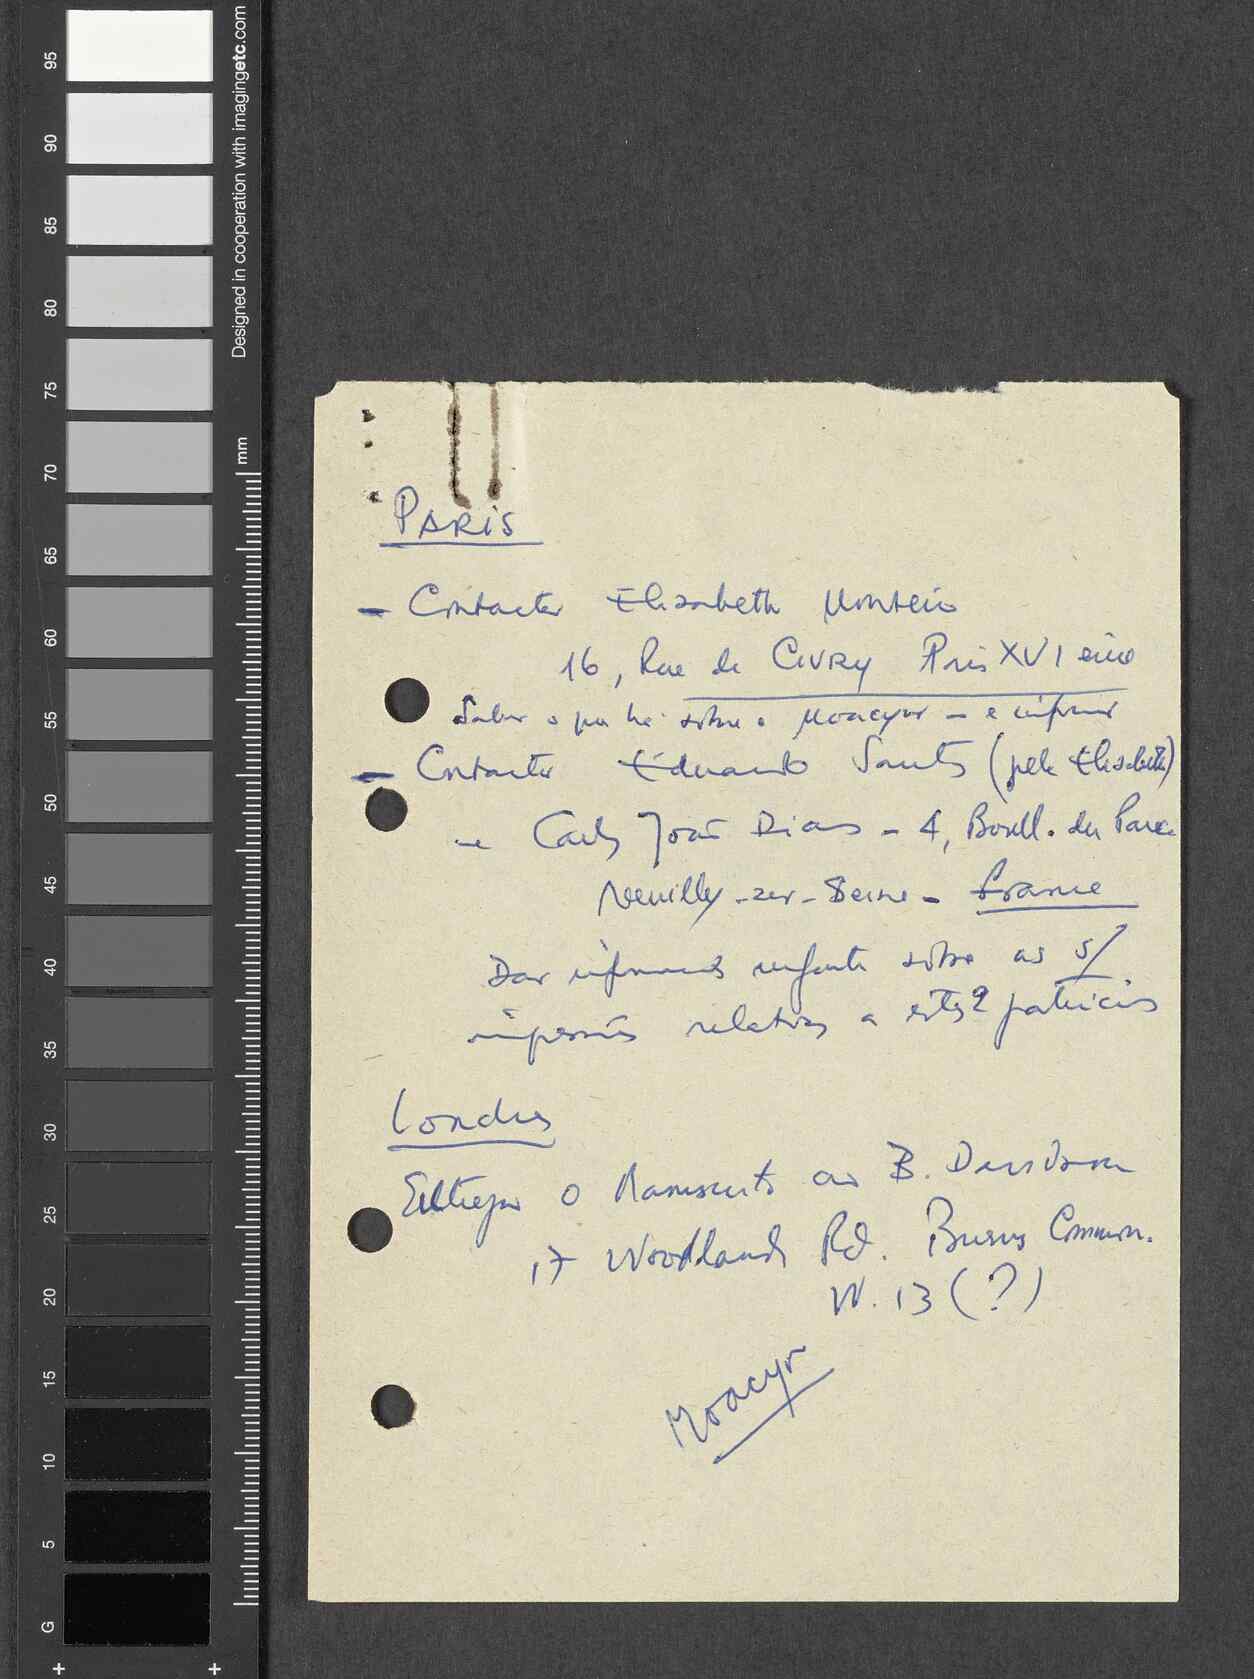 95
90
85
80
75
70
65
60
55
50
45
40
35
30
25
20
15
10
5
G
Designed in cooperation with imagingetc.com
mm
PARIS
– Contactar Elisabeth Monteiro
16, Rue de CIVRY Paris XVI ème
Saber o que há sobre o Moacyr – e informar
– Contactar Eduardo Santos (pela Elisabeth)
e Carlos João Dias – 4, Boull. du Parc
Neuilly-sur-Seine – France
Dar informes sobre as s/
impressões relativas a estes 2 patrícios
Londres
Entregar o Manuscrito ao B. Davidson
17 Woodlands Rd. Barnes Common.
W. 13 (?)
Moacyr